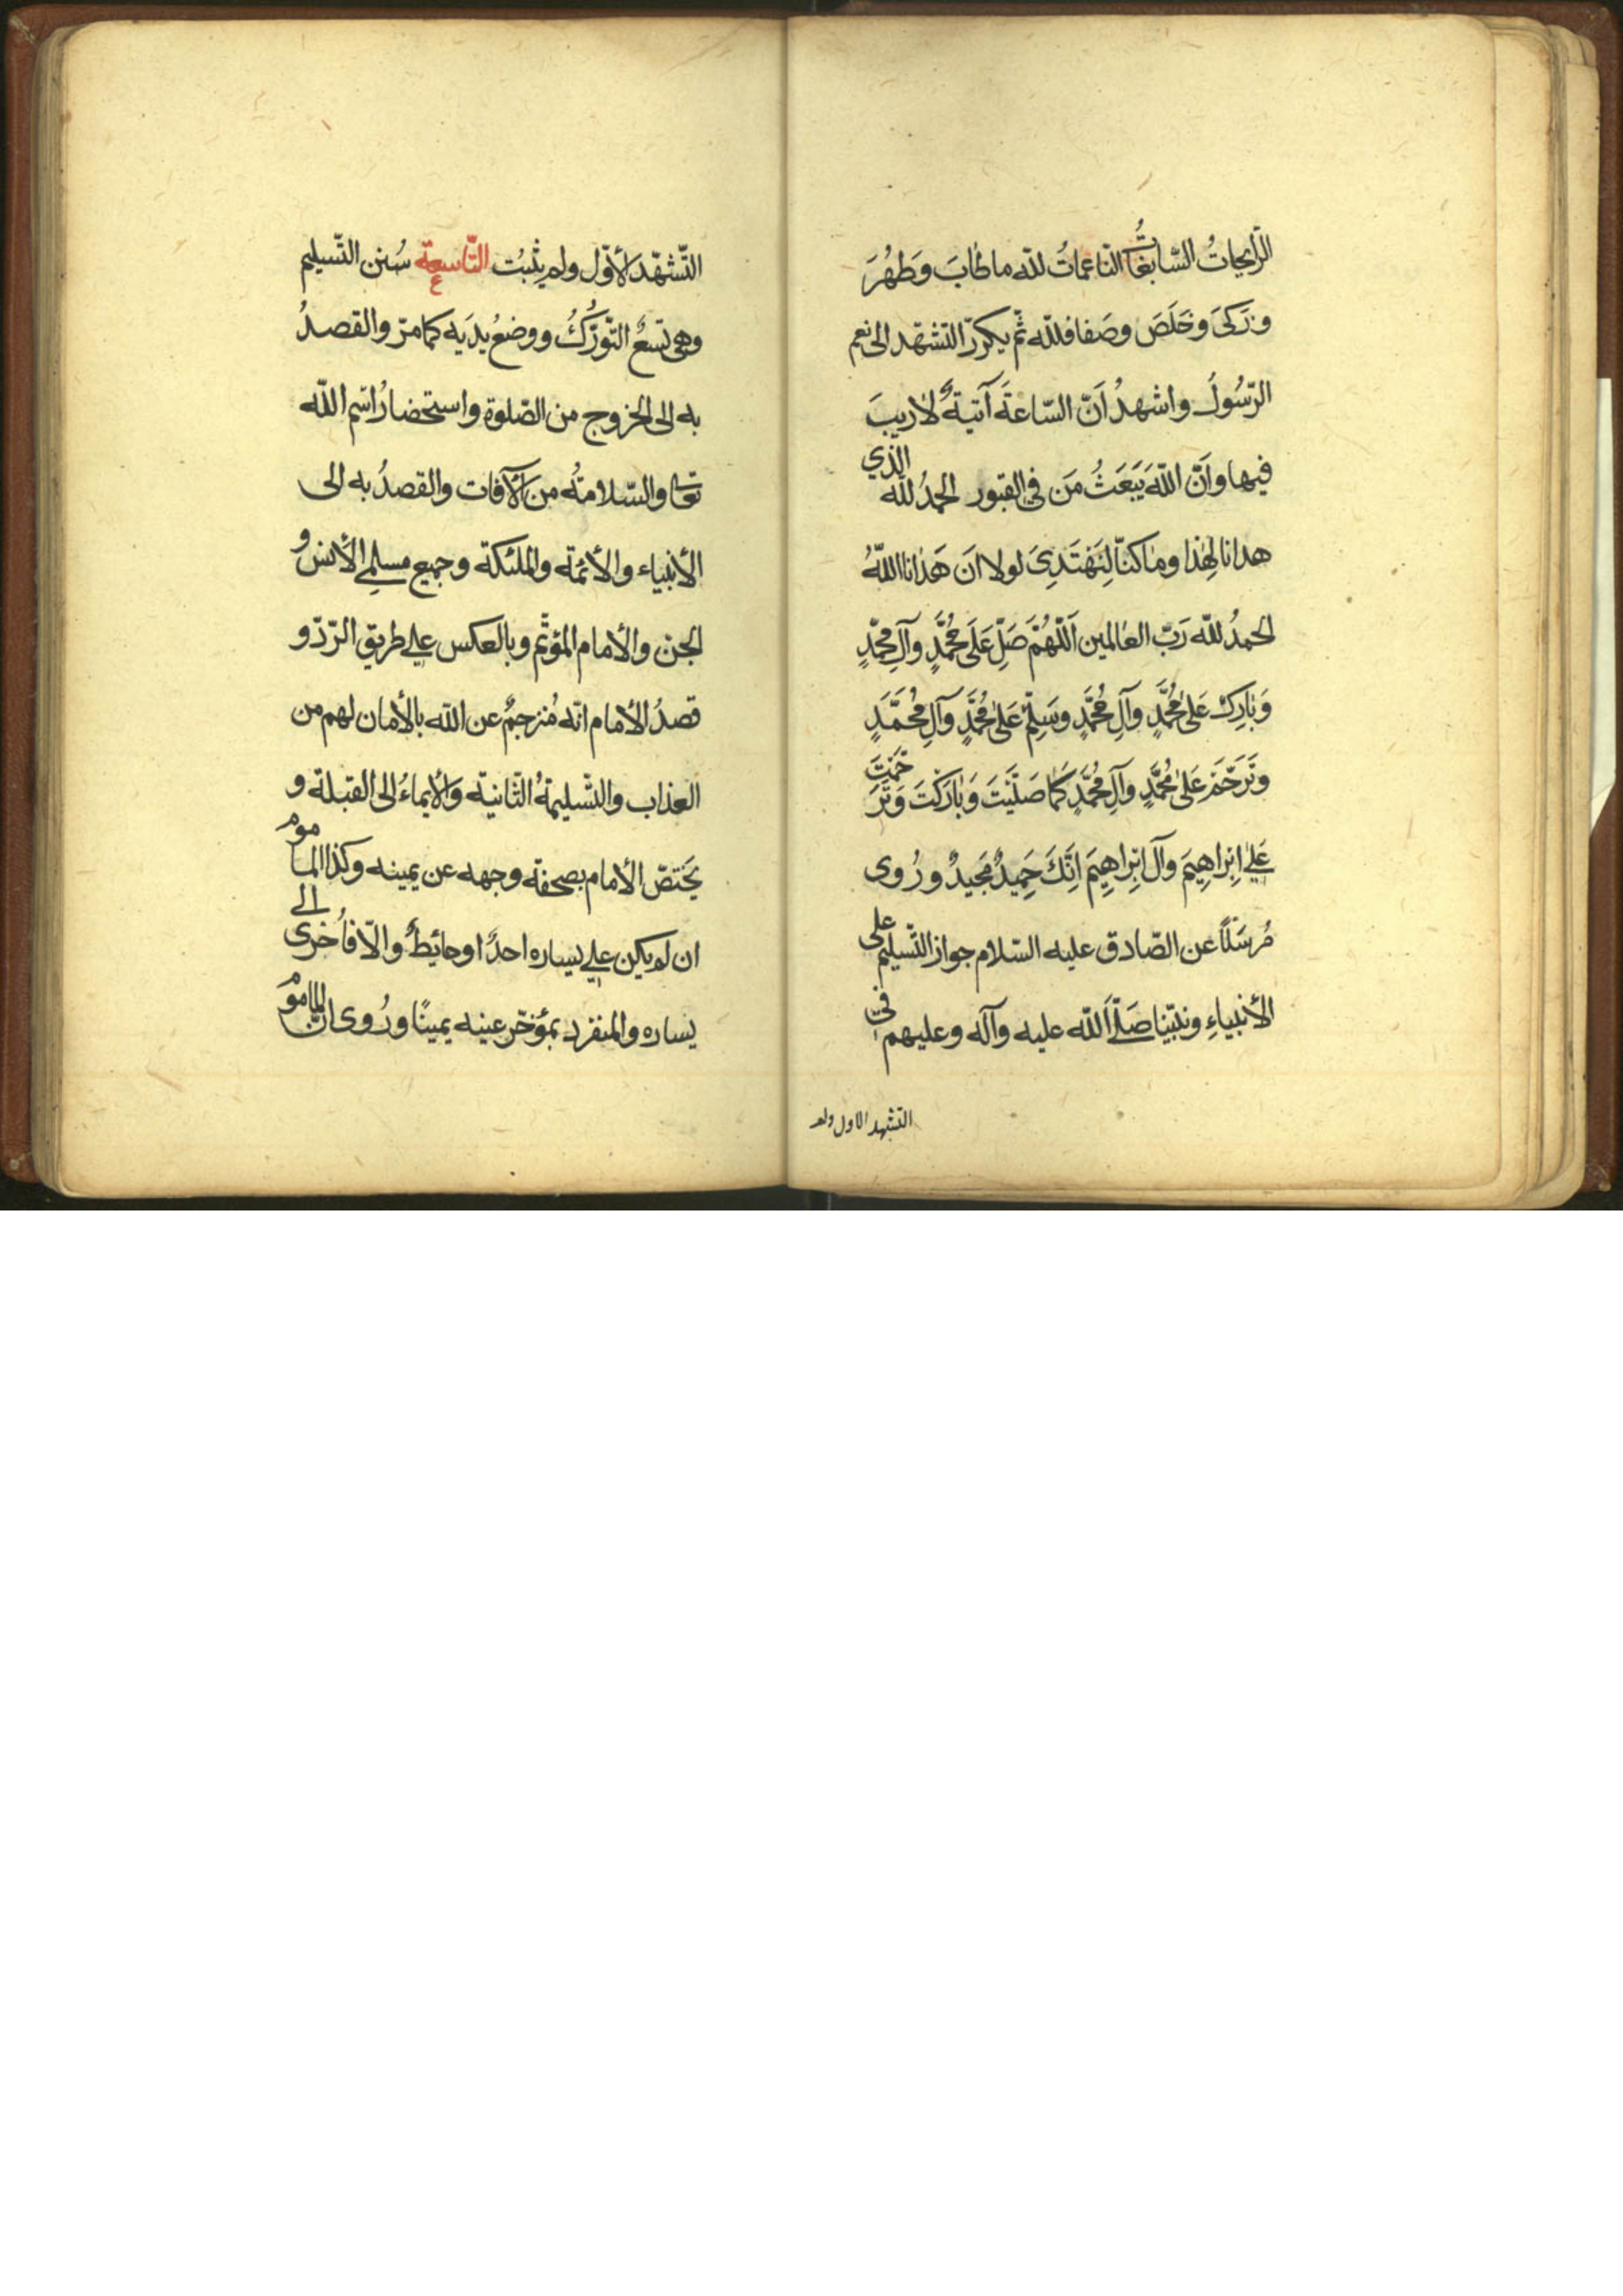 الرّايحاتُ السّابغاتُ النّاعماتُ للّه ما طابَ وَطَهُرَ
وزَكىَ وخَلَصَ وصَفا فللّه ثمّ يكرّر التشهّد الى نعم
الرّسُولُ واشهدُ اَنّ السّاعةَ آتيةٌ لا ريبَ
فيها واَنّ اللّهَ يَبعَثُ مَن في القبور الحمدُ للّه الذي
هدانا لهذا وما كنّا لِنَهتَدِىَ لولا اَن هَدانا اللّهُ
الحمدُ للّه رَبّ العالمين اَللّهُمَّ صَلِّ عَلَى مُحمَّدٍ وآلِ محمّدٍ
وَبارِك عَلى مُحمَّدٍ وآلِ مُحمَّدٍ وسَلِّم عَلى مُحمَّدٍ وآلِ مُحمَّدٍ
وتَرَحَّم عَلى مُحمَّدٍ وآلِ مُحمَّدٍ كَما صَلَّيتَ وَبارَكتَ وَتَرَحَّمتَ
عَلي اِبراهيمَ وآلِ اِبراهيمَ اِنَّكَ حَميدٌ مَجيدٌ ورُوى
مُرسَلًا عن الصّادق عليه السّلام جواز التّسليم على
الأنبياءِ ونبيّنا صَلّي اَللّه عليه وآله وعليهم في
التشهد الاول ولم
التّشهّد الأوّل ولم يثبُت التّاسعة سُنن التّسليم
وهى تسعٌ التّورُّكُ ووضعُ يدَيه كما مرّ والقصدُ
به الى الخروج من الصّلوة واستحضارُ اسم اللّه
تعالى والسّلامةُ من الآفات والقصدُ به الى
الأنبياء والأئمّة والملئكة وجميع مسلمي الأنس و
الجن والأمام المؤتمّ وبالعكس علي طريق الرّدّ و
قصدُ الأمام انّه مُترجمٌ عن اللّه بالأمان لهم من
العذاب والتّسليمةُ الثّانية والأيماءُ الى القبلة و
يختصّ الأمام بصحفة وجهه عن يمينه وكذا المأموم
ان لم يكن علي يساره احدٌ او حايطٌ والّا فأُخرى الى
يساره والمنفرد بمؤخّر عينه يمينًا ورُوى انّ المأموم